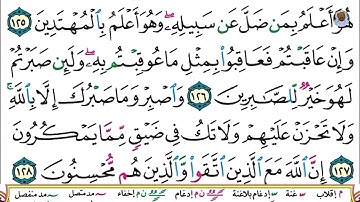 هُوَ أَعْلَمُ بِمَن ضَلَّ عَن سَبِيلِهِۦ ۖ وَهُوَ أَعْلَمُ بِٱلْمُهْتَدِينَ ١٢٥
وَإِنْ عَاقَبْتُمْ فَعَاقِبُوا۟ بِمِثْلِ مَا عُوقِبْتُم بِهِۦ ۖ وَلَئِن صَبَرْتُمْ
لَهُوَ خَيْرٌ لِّلصَّـٰبِرِينَ ١٢٦ وَٱصْبِرْ وَمَا صَبْرُكَ إِلَّا بِٱللَّهِ ۚ
وَلَا تَحْزَنْ عَلَيْهِمْ وَلَا تَكُ فِى ضَيْقٍ مِّمَّا يَمْكُرُونَ
١٢٧ إِنَّ ٱللَّهَ مَعَ ٱلَّذِينَ ٱتَّقَوا۟ وَّٱلَّذِينَ هُم مُّحْسِنُونَ ١٢٨
م إقلاب غنة إدغام بلاغنة إدغام إخفاء مد متصل مد منفصل